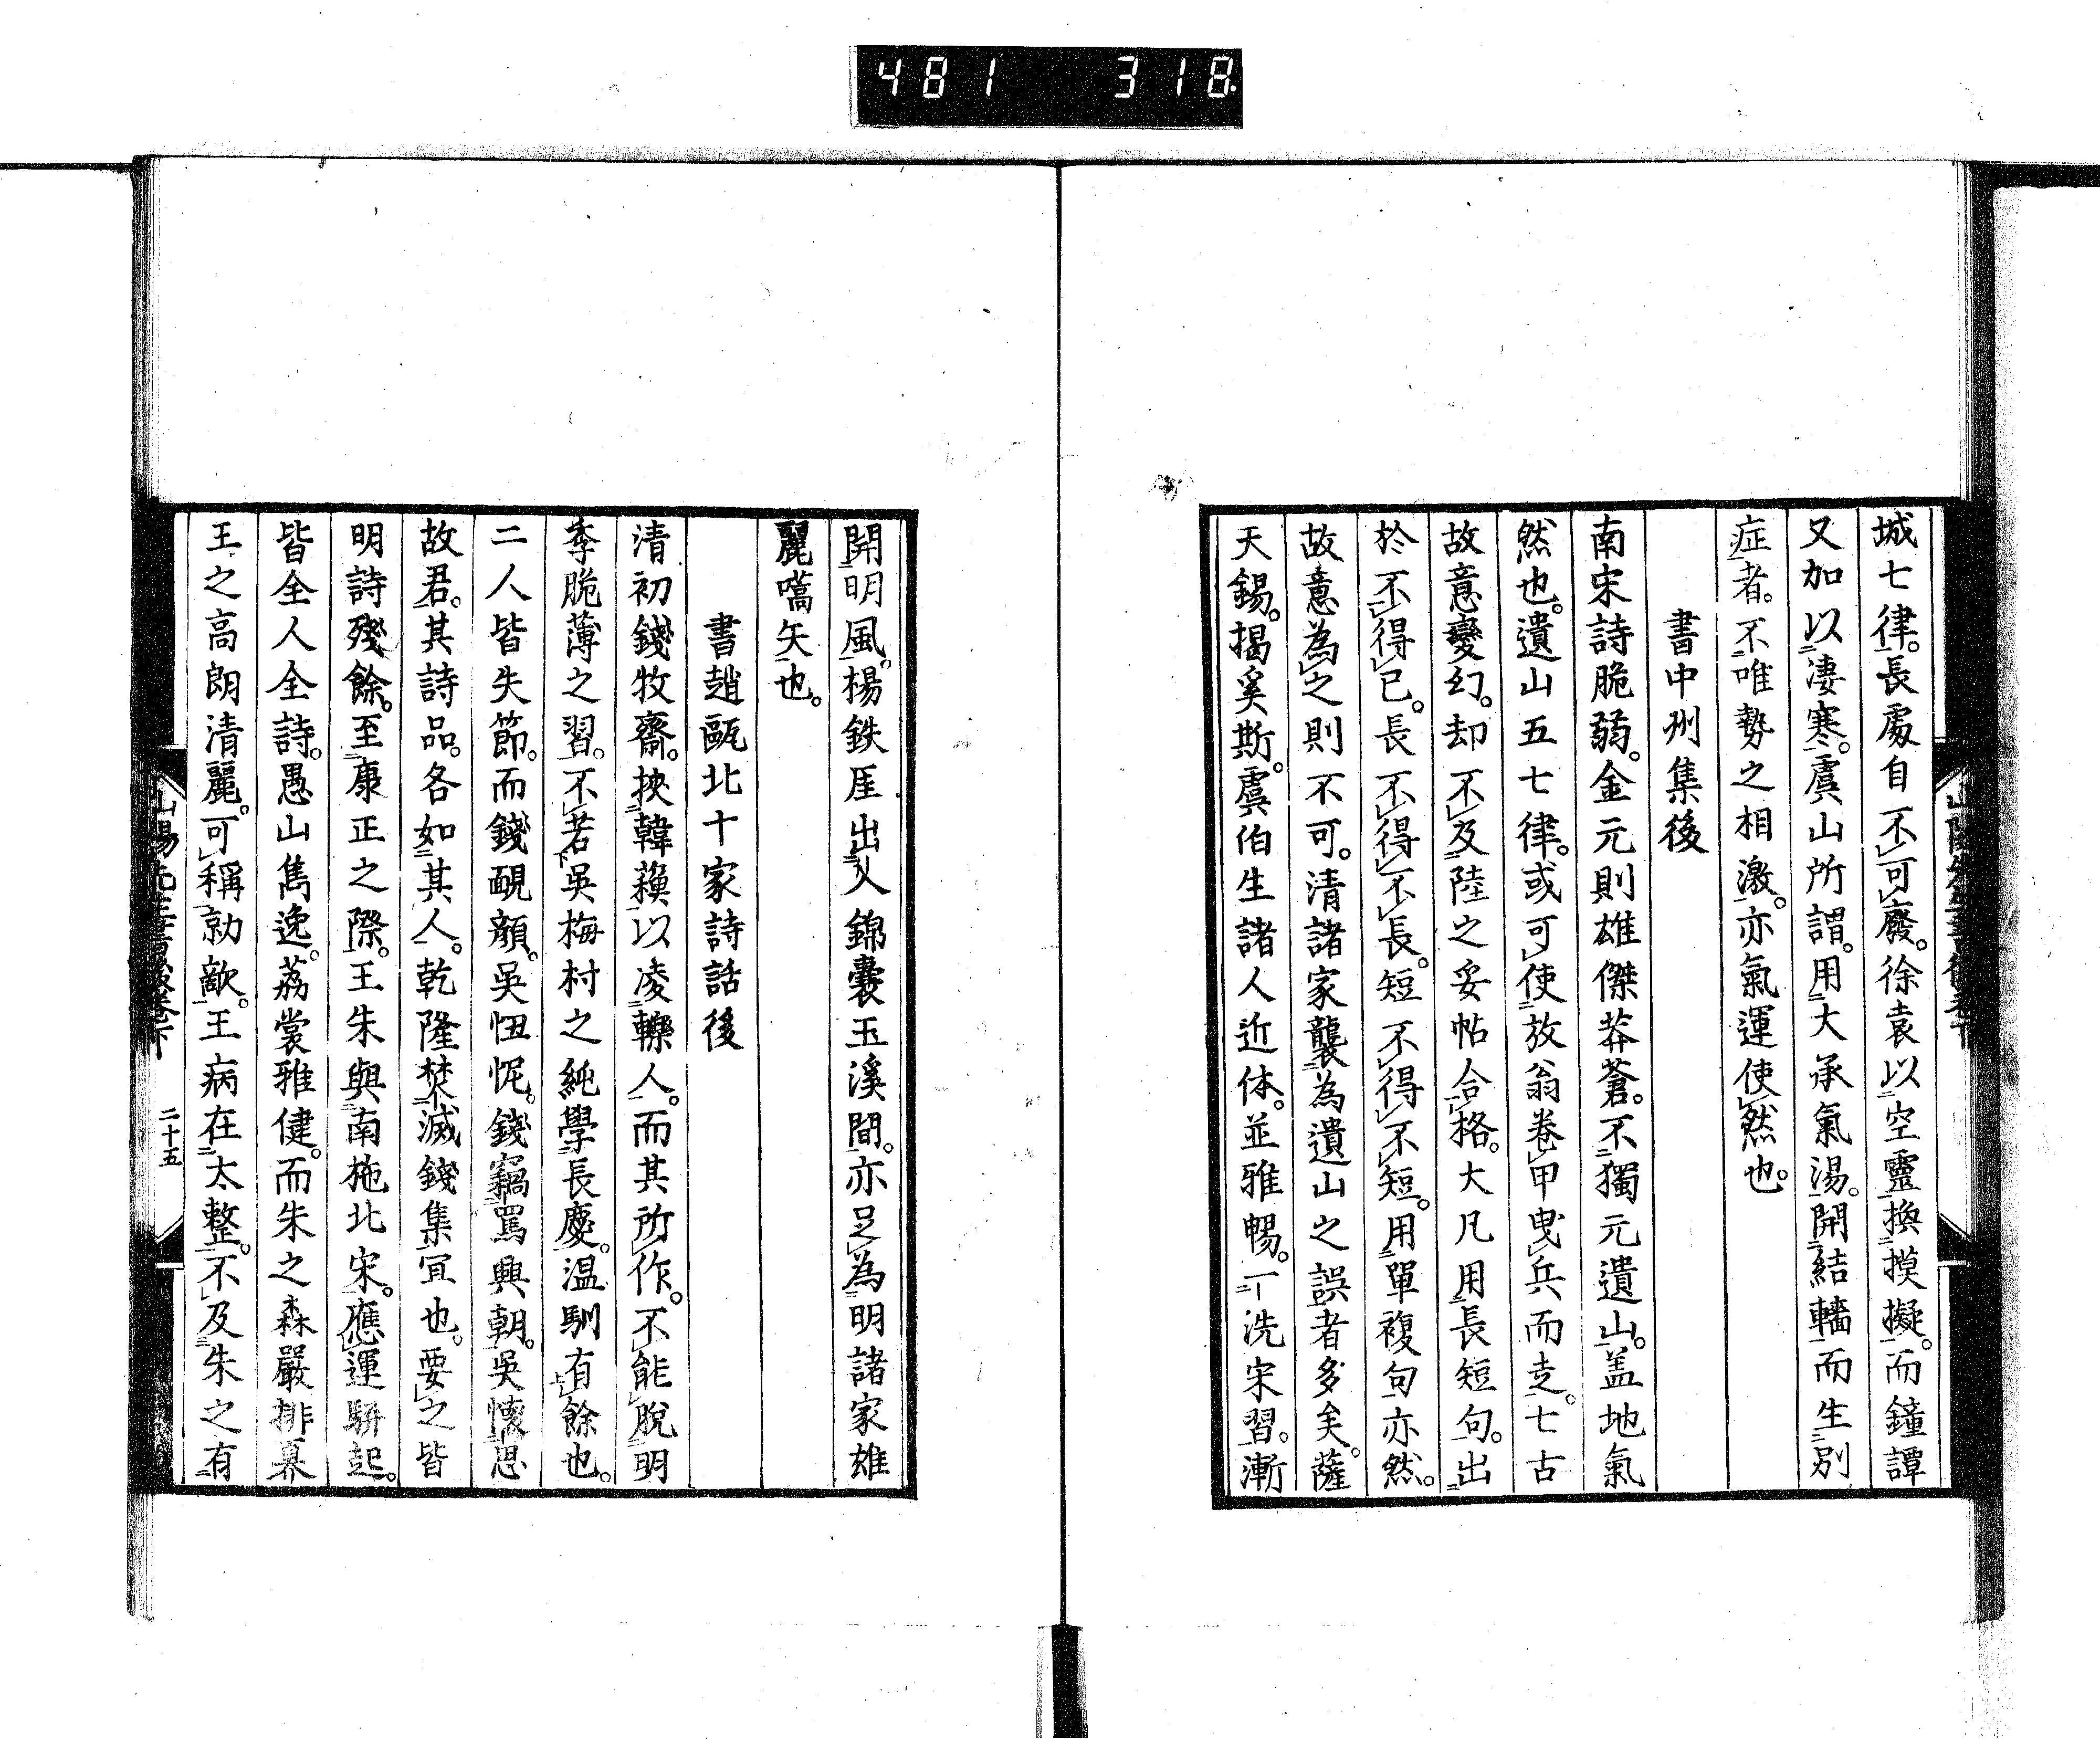 481 318
城七律。長處自不可廢。徐袁以空靈換摸擬。而鐘譚
又加以凄寒。虞山所謂。用大承氣湯。開結轖而生別
症者。不唯勢之相激。亦氣運使然也。
書中州集後
南宋詩脆弱。金元則雄傑莽蒼。不獨元遺山。盖地氣
然也。遺山五七律。或可使放翁卷甲曵兵而走。七古
故意變幻。却不及陸之妥帖合格。大凡用長短句。出
於不得已。長不得不長。短不得不短。用單複句亦然。
故意為之則不可。清諸家襲為遺山之誤者多矣。薩
天錫。揭奚斯。虞伯生諸人近体。並雅暢。一洗宋習。漸
開明風。楊鉄厓出入錦囊玉溪間。亦足為明諸家雄
麗嚆矢也。
書趙甌北十家詩話後
清初錢牧齋。挾韓蘓以凌轢人。而其所作。不能脫明
季脆薄之習。不若吳梅村之純學長慶。温馴有餘也。
二人皆失節。而錢靦顏。吳忸怩。錢竊罵興朝。吳懷思
故君。其詩品。各如其人。乾隆焚滅錢集宜也。要之皆
明詩殘餘。至康正之際。王朱與南施北宋。應運駢起。
皆全人全詩。愚山雋逸。荔裳雅健。而朱之森嚴排奡
王之高朗清麗。可稱勍敵。王病在太整。不及朱之有
山陽先生書後卷下 二十五